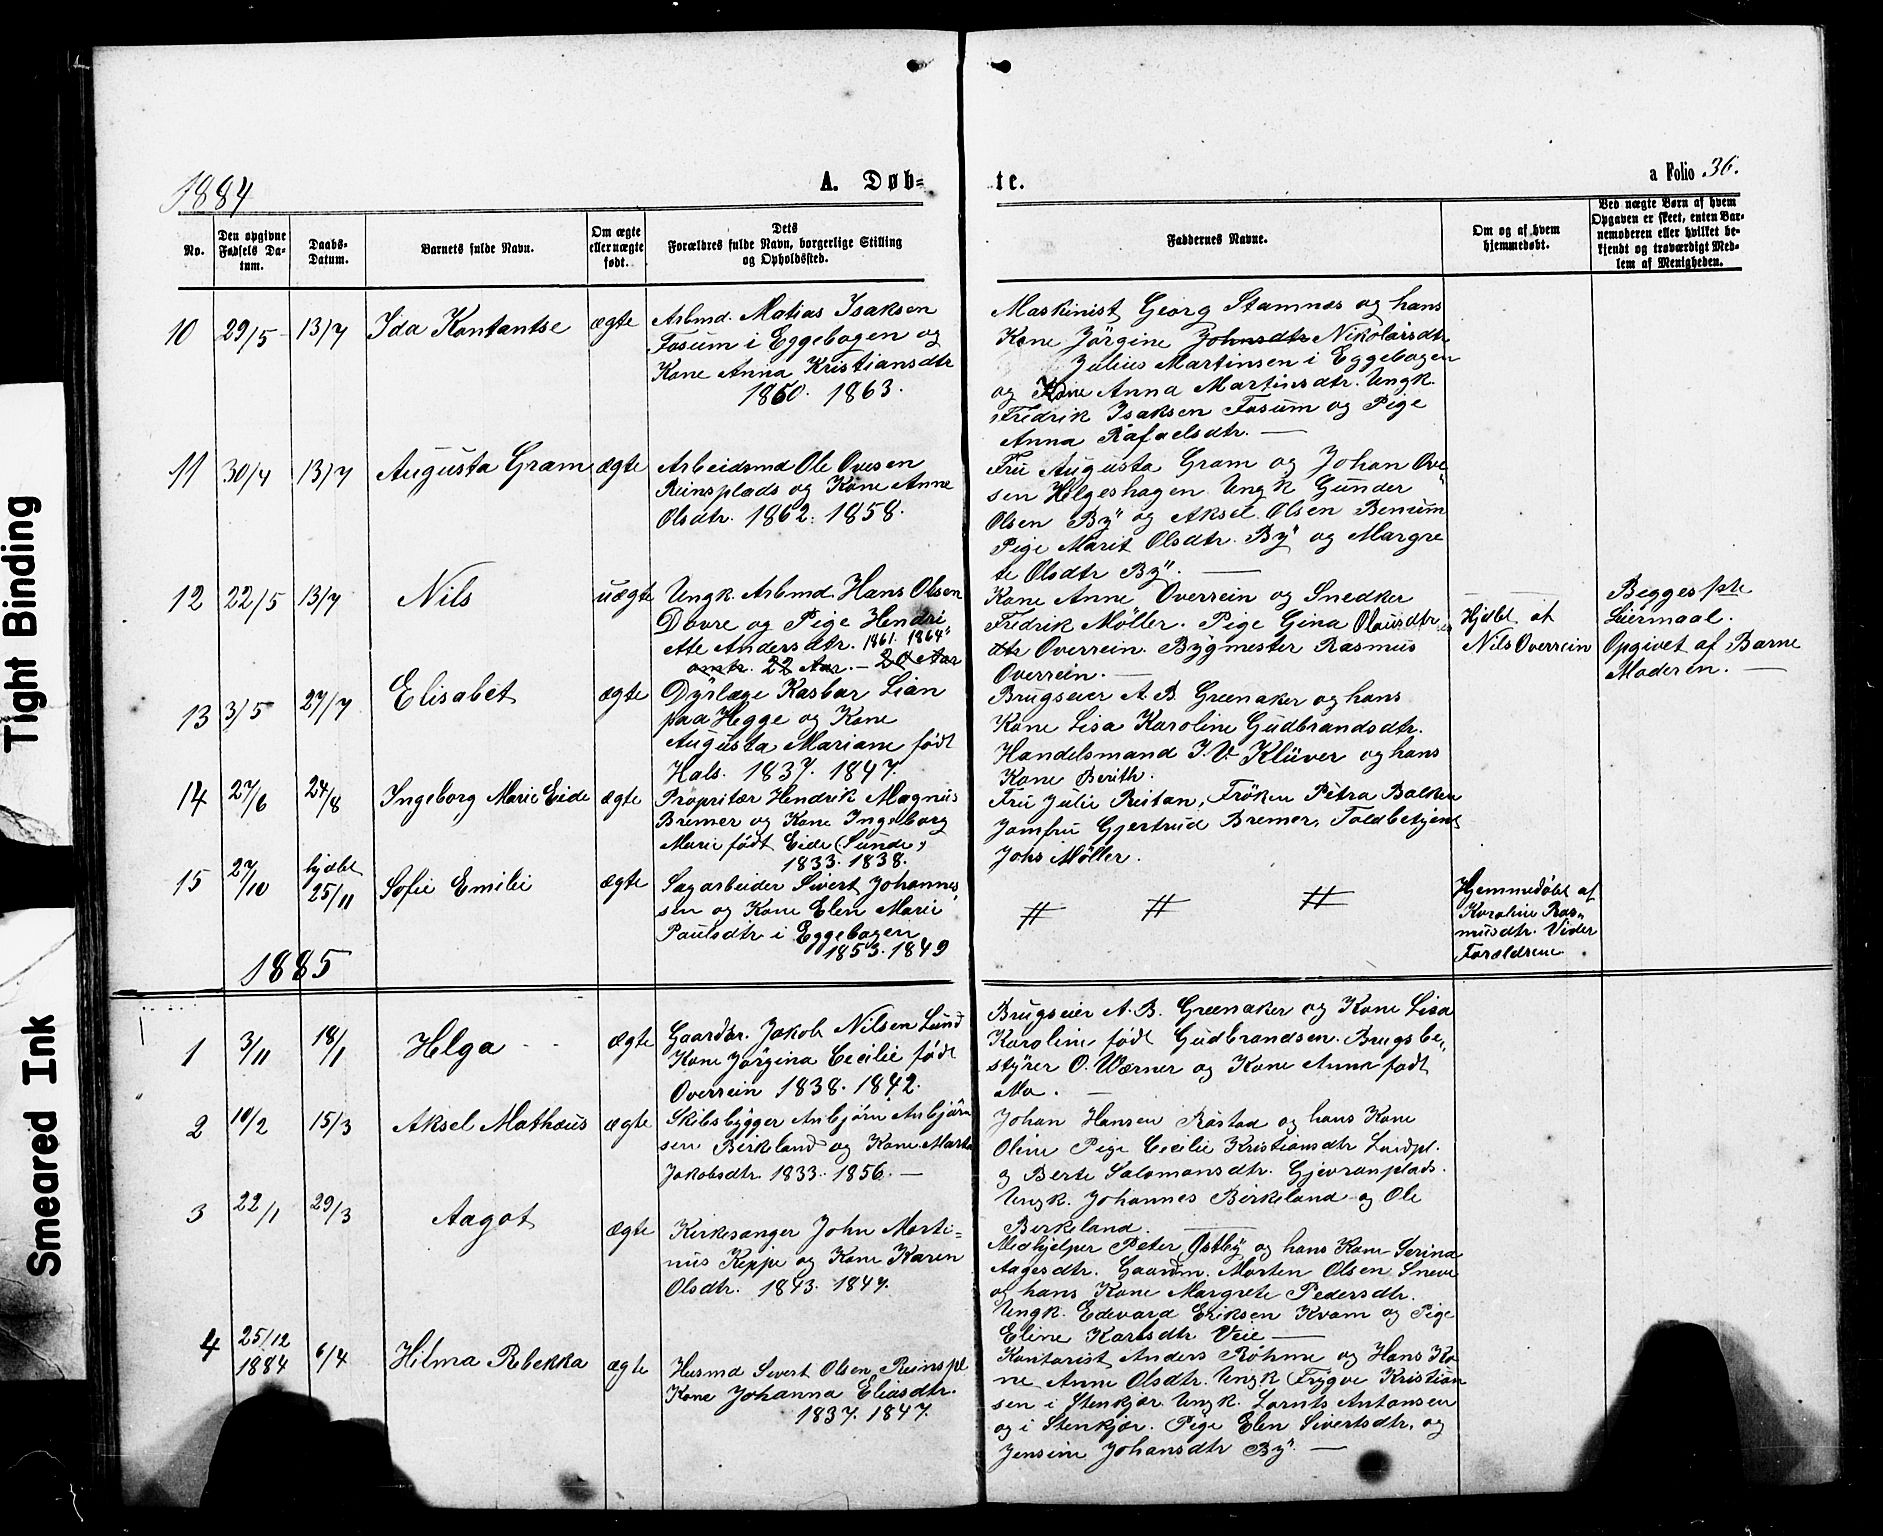 1884
A. Døb-
te.
a Folio 36.
No.
Den opgivne
Fødsels Da-
tum.
Daabs-
Datum.
Barnets fulde Navn.
Om ægte
eller uægte
født.
Dets
Forældres fulde Navn, borgerlige Stilling
og Opholdssted.
Faddernes Navne.
Om og af hvem
hjemmedøbt.
Ved uægte Børn af hvem
Opgaven er skeet, enten Bar-
nemoderen eller hvilket be-
kjendt og troværdigt Med-
lem af Menigheden.
10 29/5 13/7 Ida Konstantse ægte
Arbmd. Matias Isaksen
Fosum i Eggebogen og
Kone Anna Kristiansdtr
1860. 1863.
Maskinist Georg Stamnes og hans
Kone Jørgine Johnsdtr Nikolaisdtr
Julius Martinsen i Eggebogen
og Kone Anna Martinsdtr. Ungk.
Fredrik Isaksen Fosum og Pige
Anna Rafaelsdtr. —
11 30/4 13/7 Augusta Gram ægte
Arbeidsmd Ole Ovesen
Reinsplads og Kone Anne
Olsdtr. 1862. 1858.
Fru Augusta Gram og Johan Ove"
sen Helgeshagen. Ungk Gunder
Olsen By og Aksel Olsen Benum
Pige Marit Olsdtr. By og Margre
te Olsdtr By. —
12 22/5 13/7 Nils uægte
Ungk. Arbmd. Hans Olsen
Dovre og Pige Hendri
ette Andersdtr. 1861. 1864"
omtr. 22 Aar. — 20 Aar
Kone Anne Overrein og Snedker
Fredrik Möller. Pige Gina Olausdtr
dtr Overrein. Bygmester Rasmus
Overrein. —
Hjdbt af
Nils Overrein
Begges 1ste
Leiermaal.
Opgivet af Barne
Moderen. —
13 3/5 27/7 Elisabet ægte
Dyrlæge Kasbar Lian
paa Hegge og Kone
Augusta Mariane født
Hals. 1837. 1847.
Brugseier A. B. Greenaker og hans
Kone Lisa Karoline Gudbrandsdtr.
Handelsmand I. V. Klüver og hans
Kone Berith.
14 27/6 24/8 Ingeborg Marie Eide ægte
Propritær Hendrik Magnus
Bremer og Kone Ingeborg
Marie født Eide (Sunde)
1833. 1838.
Fru Julie Reitan, Fröken Petra Balken
Jomfru Gjertrud Bremer, Toldbetjent
Johs Möller.
15 27/10 hjdbt
25/11 Sofie Emilie ægte
Sagarbeider Sivert Johannes
sen og Kone Elen Marie
Paulsdtr i Eggebogen
1853. 1849
Hjemmedöbt af
Karoline Ras"
musdtr. Vider
Foraldrene
1885
1 3/11 18/1 Helga ægte
Gaardbr. Jakob Nilsen Lund
Kone Jörgina Cecilie født
Overrein 1838. 1842.
Brugseier A. B. Greenaker og Kone Lisa
Karoline født Gudbrandsen. Brugsbe"
styrer O. Wærner og Kone Anna født
Mo. —
2 10/2 15/3 Aksel Mathæus ægte
Skibsbygger Anbjörn Anbjörn
sen Birkeland og Kone Marta
Jakobsdtr. 1833. 1856. —
Johan Hansen Råstad og hans Kone
Oline Pige Cecilie Kristiansdtr Lundpl.
og Berte Salomonsdtr. Gjevranplads.
Ungk. Johannes Birkeland og Ole
Birkeland.
3 22/1 29/3 Aagot ægte
Kirkesanger John Marti=
nus Keppe og Kone Karen
Olsdtr. 1843. 1847.
Medhjelper Peter Østby og hans Kone Serina
Aagesdtr. Gaardm. Morten Olsen Sneve
og hans Kone Margrete Pedersdtr.
Ungk. Edvard Eriksen Kvam og Pige
Eline Karlsdtr Veie —
4 25/12
1884 6/4 Hilma Rebekka ægte
Husmd Sivert Olsen Reinspl
Kone Johanna Eliasdtr.
1837. 1847.
Kontorist Anders Röhme og Hans Ko
ne Anne Olsdtr. Ungk Trygve Kristian
sen i Stenkjær Ungk. Lornts Antonsen
og i Stenkjær. Pige Elen Sivertsdtr. og
Jensine Johansdtr By. —
Tight Binding
Smeared Ink